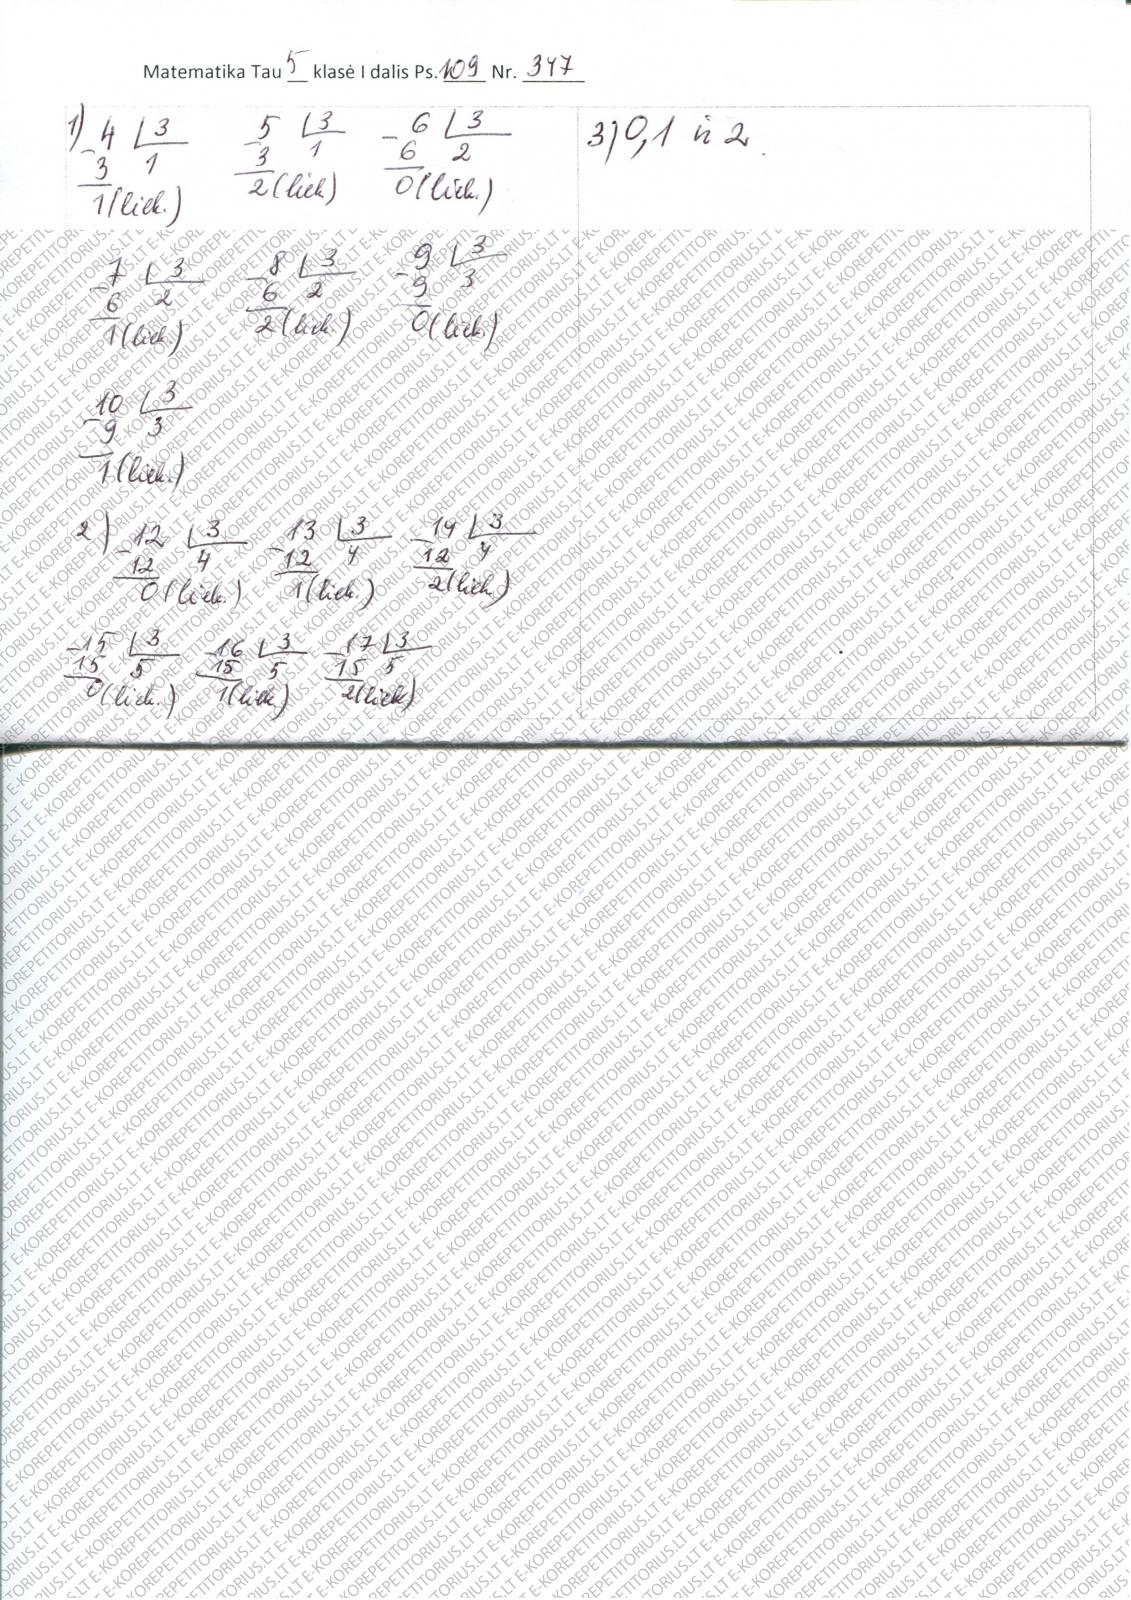 Matematika Tau 5 klasė I dalis Ps. 109 Nr. 347
1) 4 3 5 3 6 3
-3 1 3 1 -6 2
1(liek.) 2(liek) 0(liek.)
3) 0,1 ir 2.
7 3 8 3 9 3
-6 2 -6 2 -9 3
1(liek.) 2(liek.) 0(liek.)
10 3
-9 3
1(liek.)
2) -12 3 -13 3 -14 3
12 4 12 4 12 4
0(liek.) 1(liek.) 2(liek.)
-15 3 -16 3 -17 3
15 5 15 5 15 5
0(liek.) 1(liek.) 2(liek)
E-KOREPETITORIUS.LT